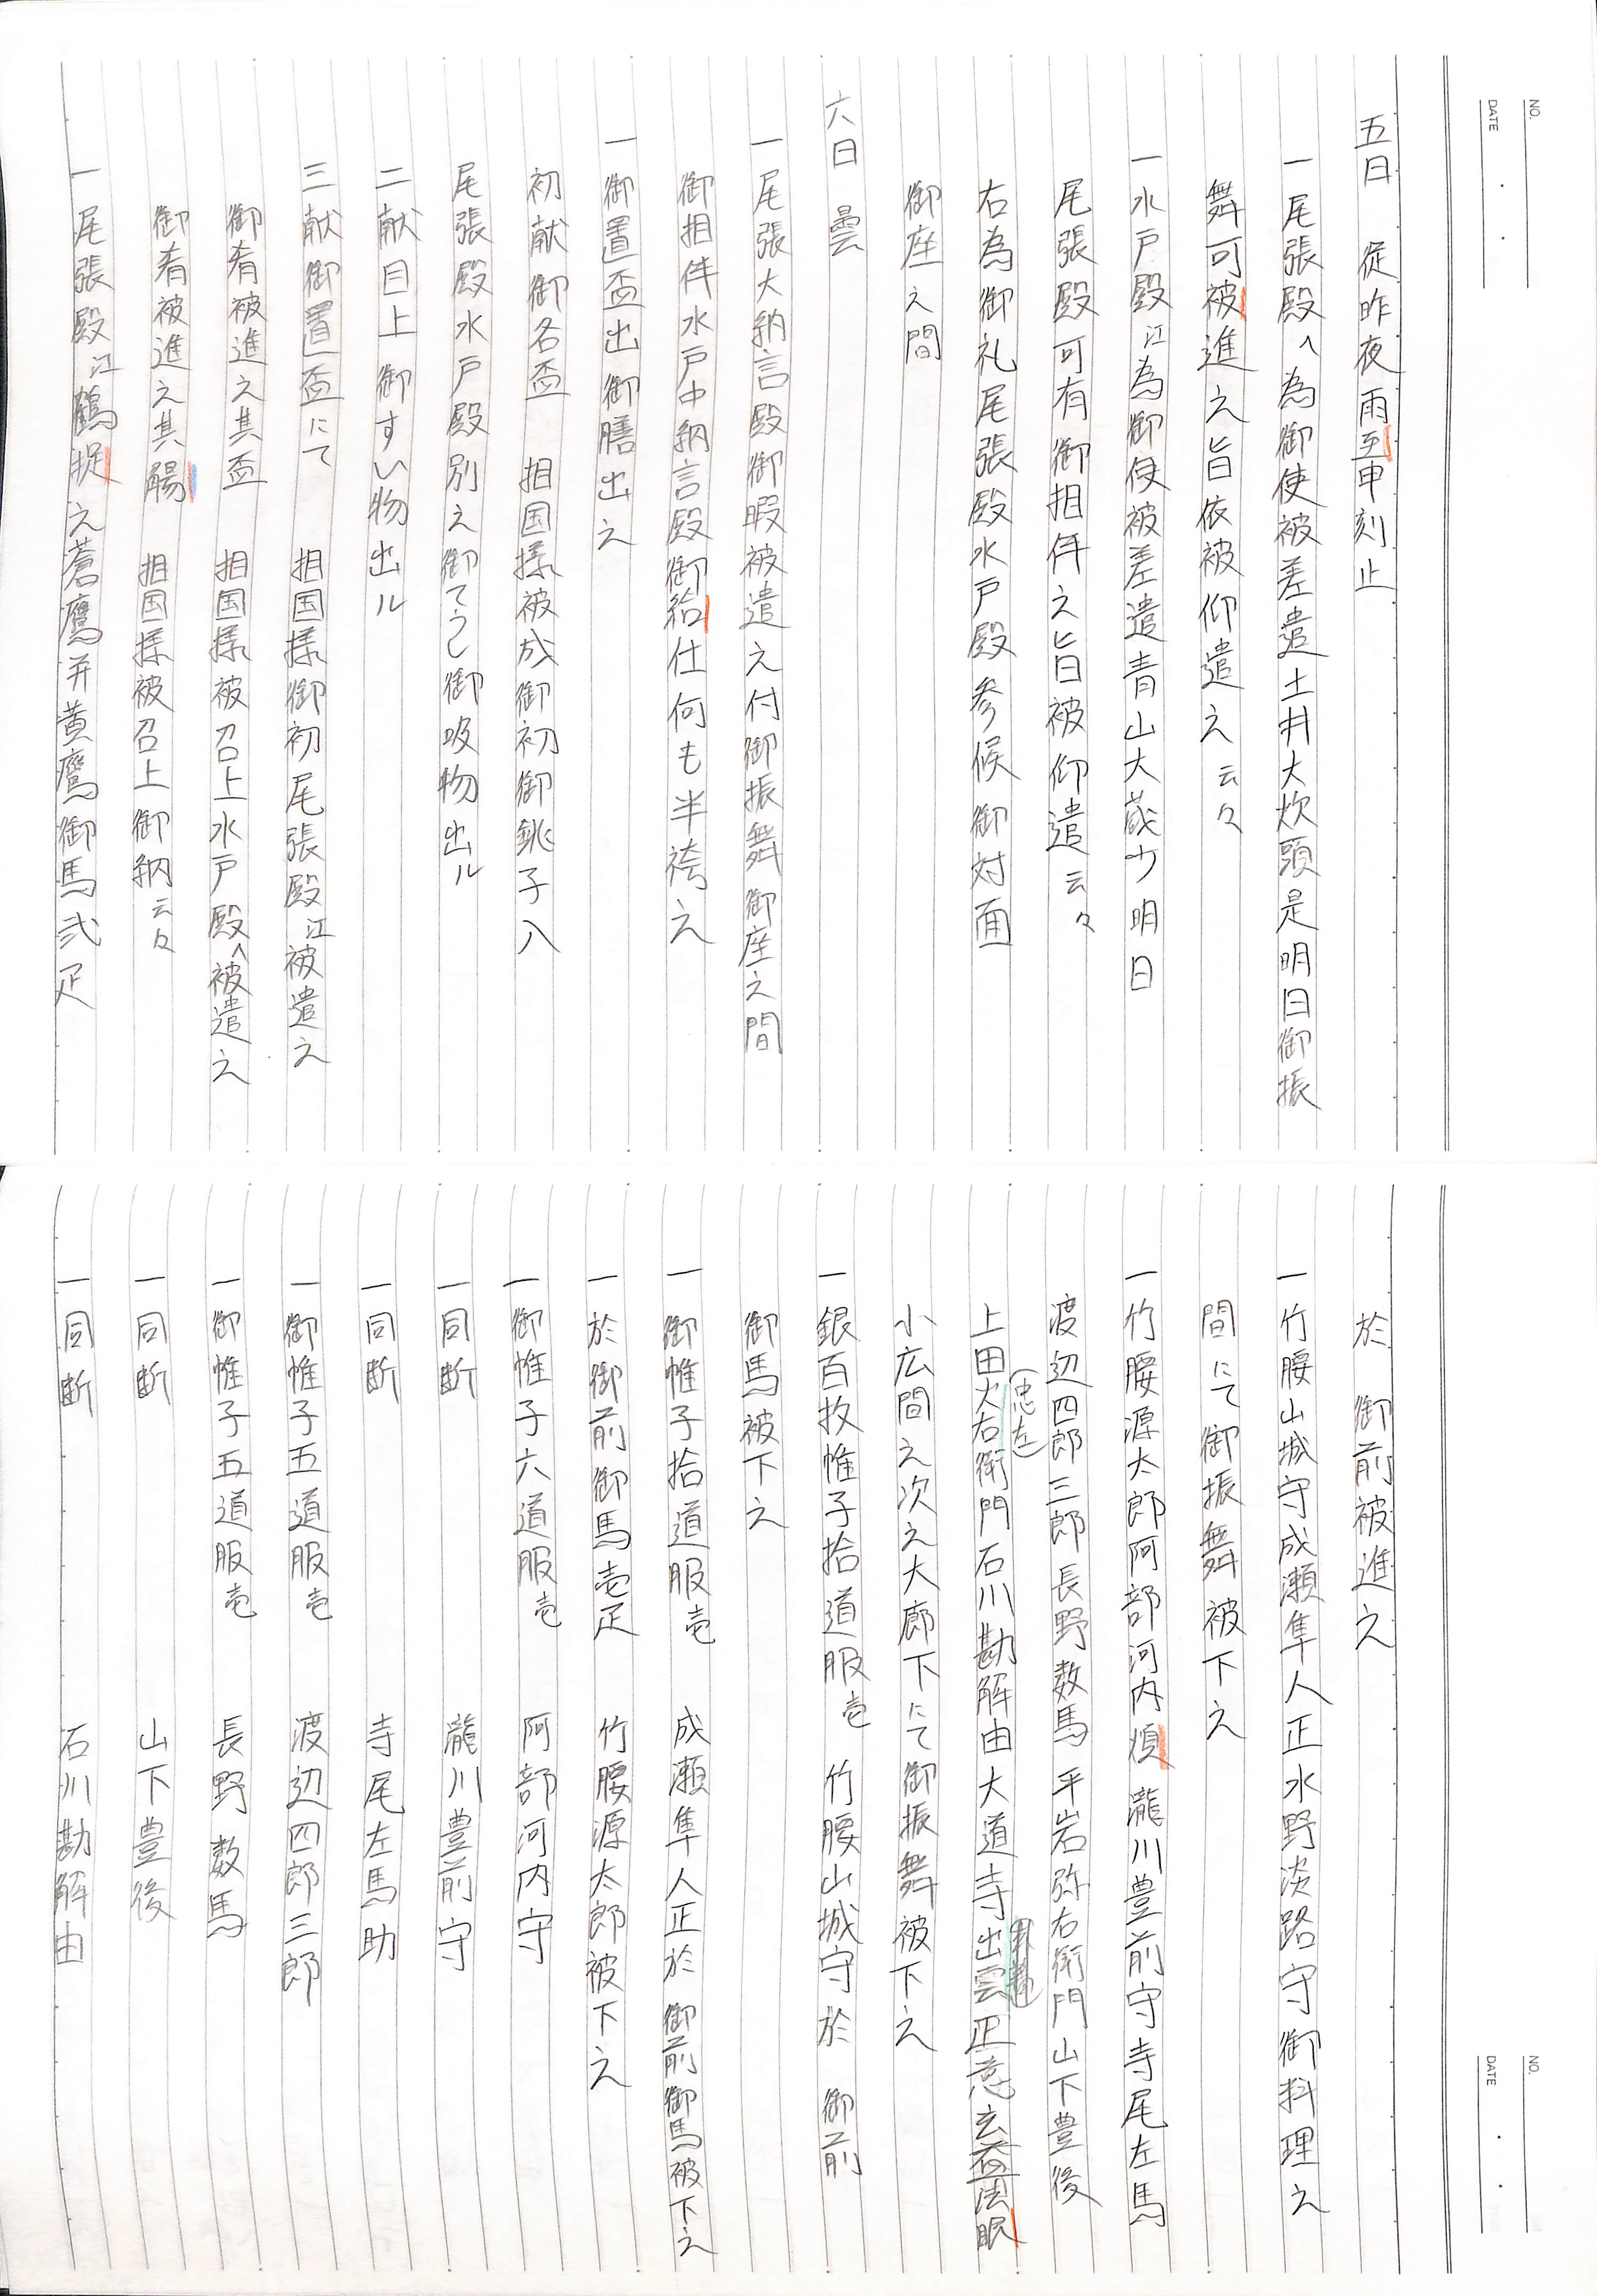 NO.
DATE
五日 従昨夜雨至申刻止
一尾張殿へ為御使被差遣土井大炊頭是明日御振
舞可被進之旨依被仰遣之云々
一水戸殿江為御使被差遣青山大蔵少明日
尾張殿可有御相伴之旨被仰遣云々
右為御礼尾張殿水戸殿参候御対面
御座之間
六日 曇
一尾張大納言殿御暇被遣之付御振舞御座之間
御相伴水戸中納言殿御給仕何も半袴之
一御置盃出御膳出之
初献御各盃 相国様被成御初御銚子入
尾張殿水戸殿別之御てうし御吸物出ル
二献目上御すい物出ル
三献御置盃にて 相国様御初尾張殿江被遣之
御肴被進之其盃 相国様被召上水戸殿へ被遣之
御肴被進之其觴 相国様被召上御納云々
一尾張殿江鶴捉之蒼鷹并黄鷹御馬弐疋
NO.
DATE
於 御前被進之
一竹腰山城守成瀬隼人正水野淡路守御料理之
間にて御振舞被下之
一竹腰源太郎阿部河内煩瀧川豊前守寺尾左馬
渡辺四郎三郎長野数馬平岩弥右衛門山下豊後
(忠左)
上田火右衛門石川勘解由大道寺出雲正意玄益法眼
小広間之次之大廊下にて御振舞被下之
一銀百枚帷子拾道服壱 竹腰山城守於 御前
御馬被下之
一御帷子拾道服壱 成瀬隼人正於 御前御馬被下之
一於御前御馬壱疋 竹腰源太郎被下之
一御帷子六道服壱 阿部河内守
一同断 瀧川豊前守
一同断 寺尾左馬助
一御帷子五道服壱 渡辺四郎三郎
一御帷子五道服壱 長野数馬
一同断 山下豊後
一同断 石川勘解由